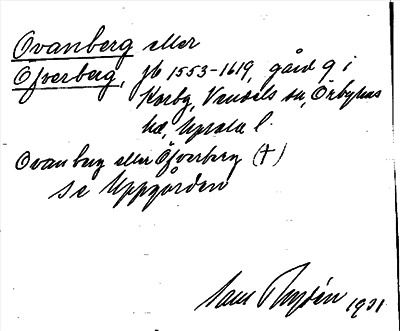 Ovanberg eller
Öfverberg, jb 1553-1619, gård 9 i
Korby, Vendels sn, Örbyhus
hd, Upsala l.
Ovanberg eller Öfverberg (†)
se Uppgården
1931